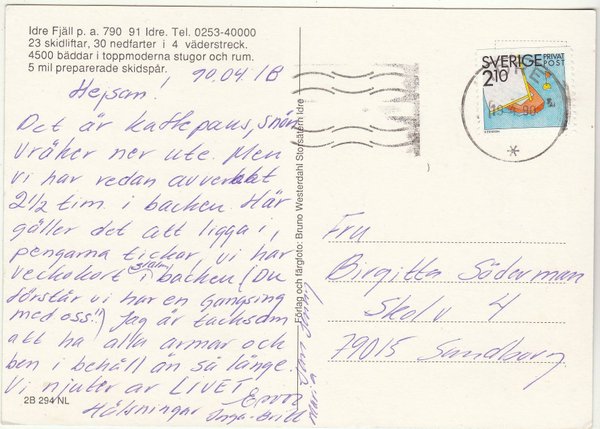 Idre Fjäll p. a. 790 91 Idre. Tel. 0253-40000
23 skidliftar, 30 nedfarter i 4 väderstreck.
4500 bäddar i toppmoderna stugor och rum.
5 mil preparerade skidspår.
90.04.18
Hejsan!
Det är kaffepaus, snön
vräker ner ute. Men
vi har redan avverkat
2 1/2 tim. i backen. Här
gäller det att ligga i,
pengarna tickar, vi har
veckokort i backen (Du
förstår vi har en
med oss!) Jag är tacksam
att ha alla armar och
ben i behåll än så länge.
Vi njuter av LIVET
Hälsningar
Inga-Britt
Maria
2B 294 NL
Förlag och färgfoto: Bruno Westerdahl Storsätern Idre
SVERIGE PRIVAT
POST
2.10
Fru
Birgitta Söderman
Skolv 4
79015 Sundborn